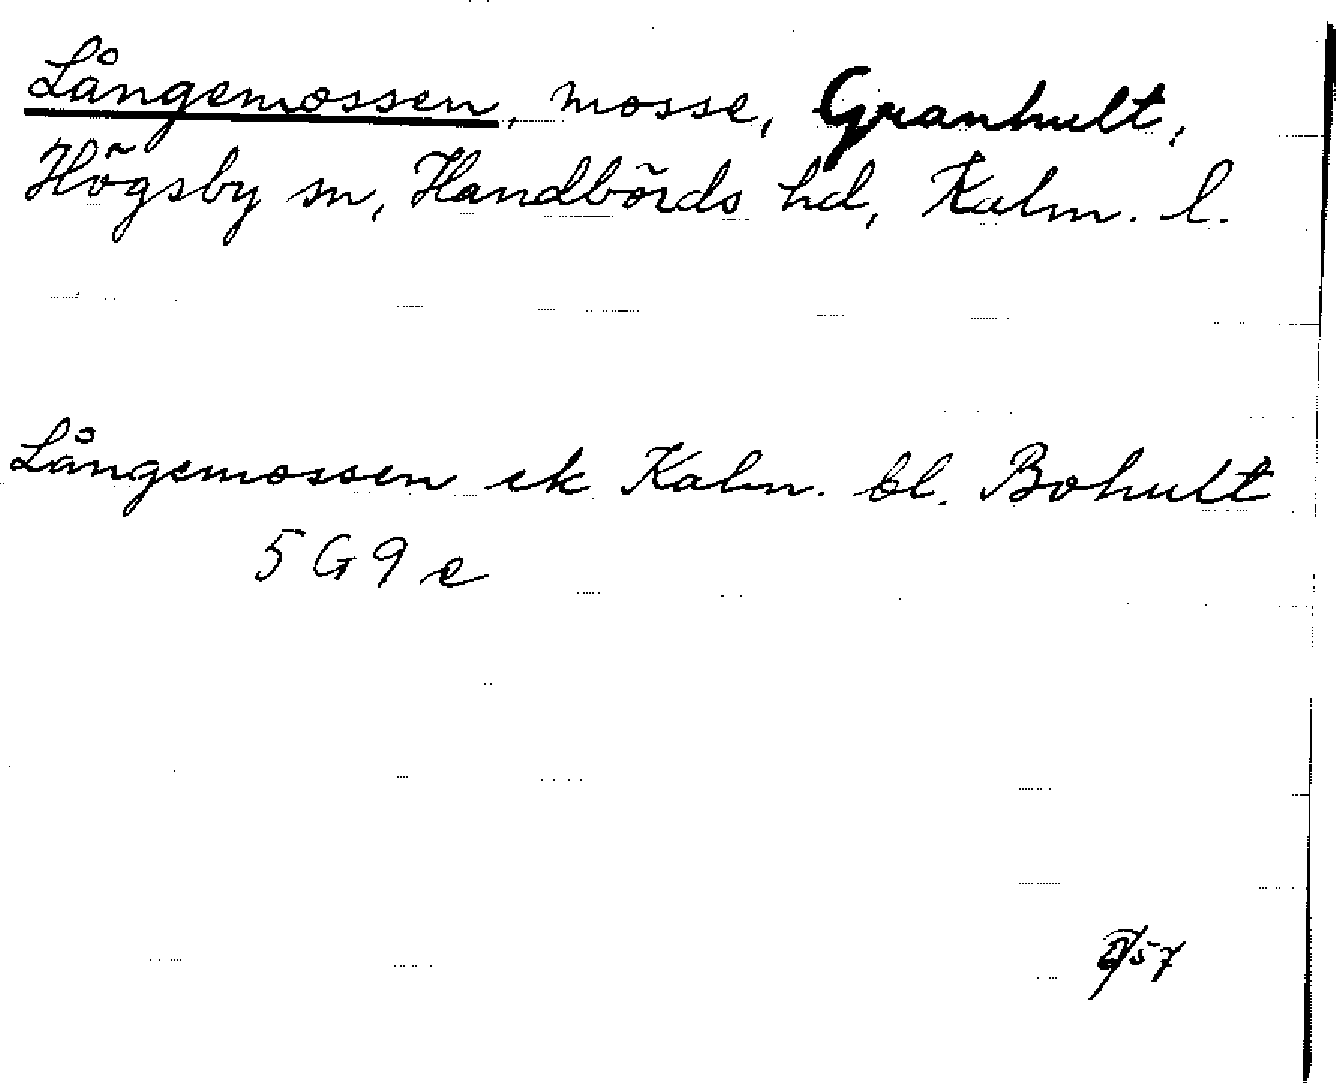 Långemossen, mosse, Granhult,
Högsby sn, Handbörds hd, Kalm. l.
Långemossen ek Kalm. bl. Bohult
5 G 9 e
57